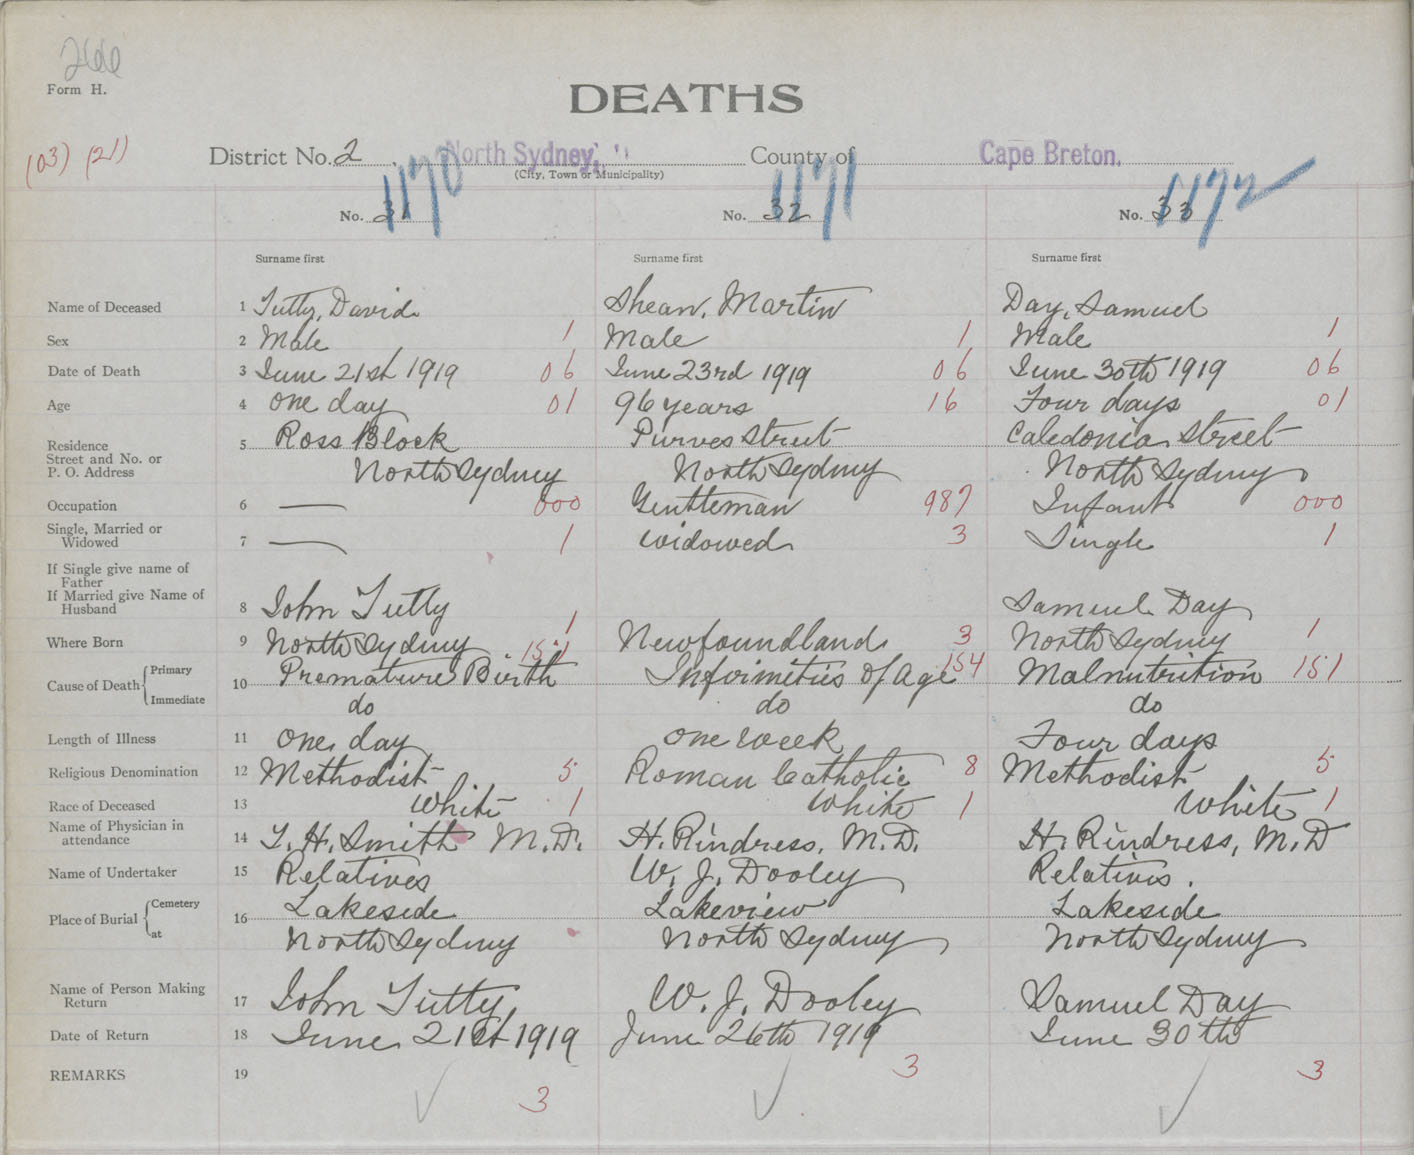 266
Form H.
DEATHS
(03) (21)
District No. 2 North Sydney, " County of Cape Breton.
(City, Town or Municipality)
1170 1171 1172
No. 31 No. 32 No. 33
Surname first Surname first Surname first
Name of Deceased 1 Tutty, David Shean, Martin Day, Samuel
Sex 2 Male 1 Male 1 Male 1
Date of Death 3 June 21st 1919 06 June 23rd 1919 06 June 30th 1919 06
Age 4 one day 01 96 years 16 Four days 01
Residence 5 Ross Block Purves Street Caledonia Street
Street and No. or
P. O. Address North Sydney North Sydney North Sydney
Occupation 6 — 000 Gentleman 987 Infant 000
Single, Married or
Widowed 7 — 1 widowed 3 Single 1
If Single give name of
Father
If Married give Name of
Husband 8 John Tutty Samuel Day
Where Born 9 North Sydney 1 Newfoundland 3 North Sydney 1
Cause of Death Primary 10 Premature Birth 151 Infirmities of Age 154 Malnutrition 151
Immediate do do do
Length of Illness 11 one day one week Four days
Religious Denomination 12 Methodist 5 Roman Catholic 8 Methodist 5
Race of Deceased 13 White 1 White 1 White 1
Name of Physician in
attendance 14 T. H. Smith M.D. H. Rindress, M.D. H. Rindress, M.D
Name of Undertaker 15 Relatives W. J. Dooley Relatives.
Place of Burial Cemetery 16 Lakeside Lakeview Lakeside
at North Sydney North Sydney North Sydney
Name of Person Making
Return 17 John Tutty W. J. Dooley Samuel Day
Date of Return 18 June 21st 1919 June 26th 1919 June 30th
REMARKS 19 3 3 3